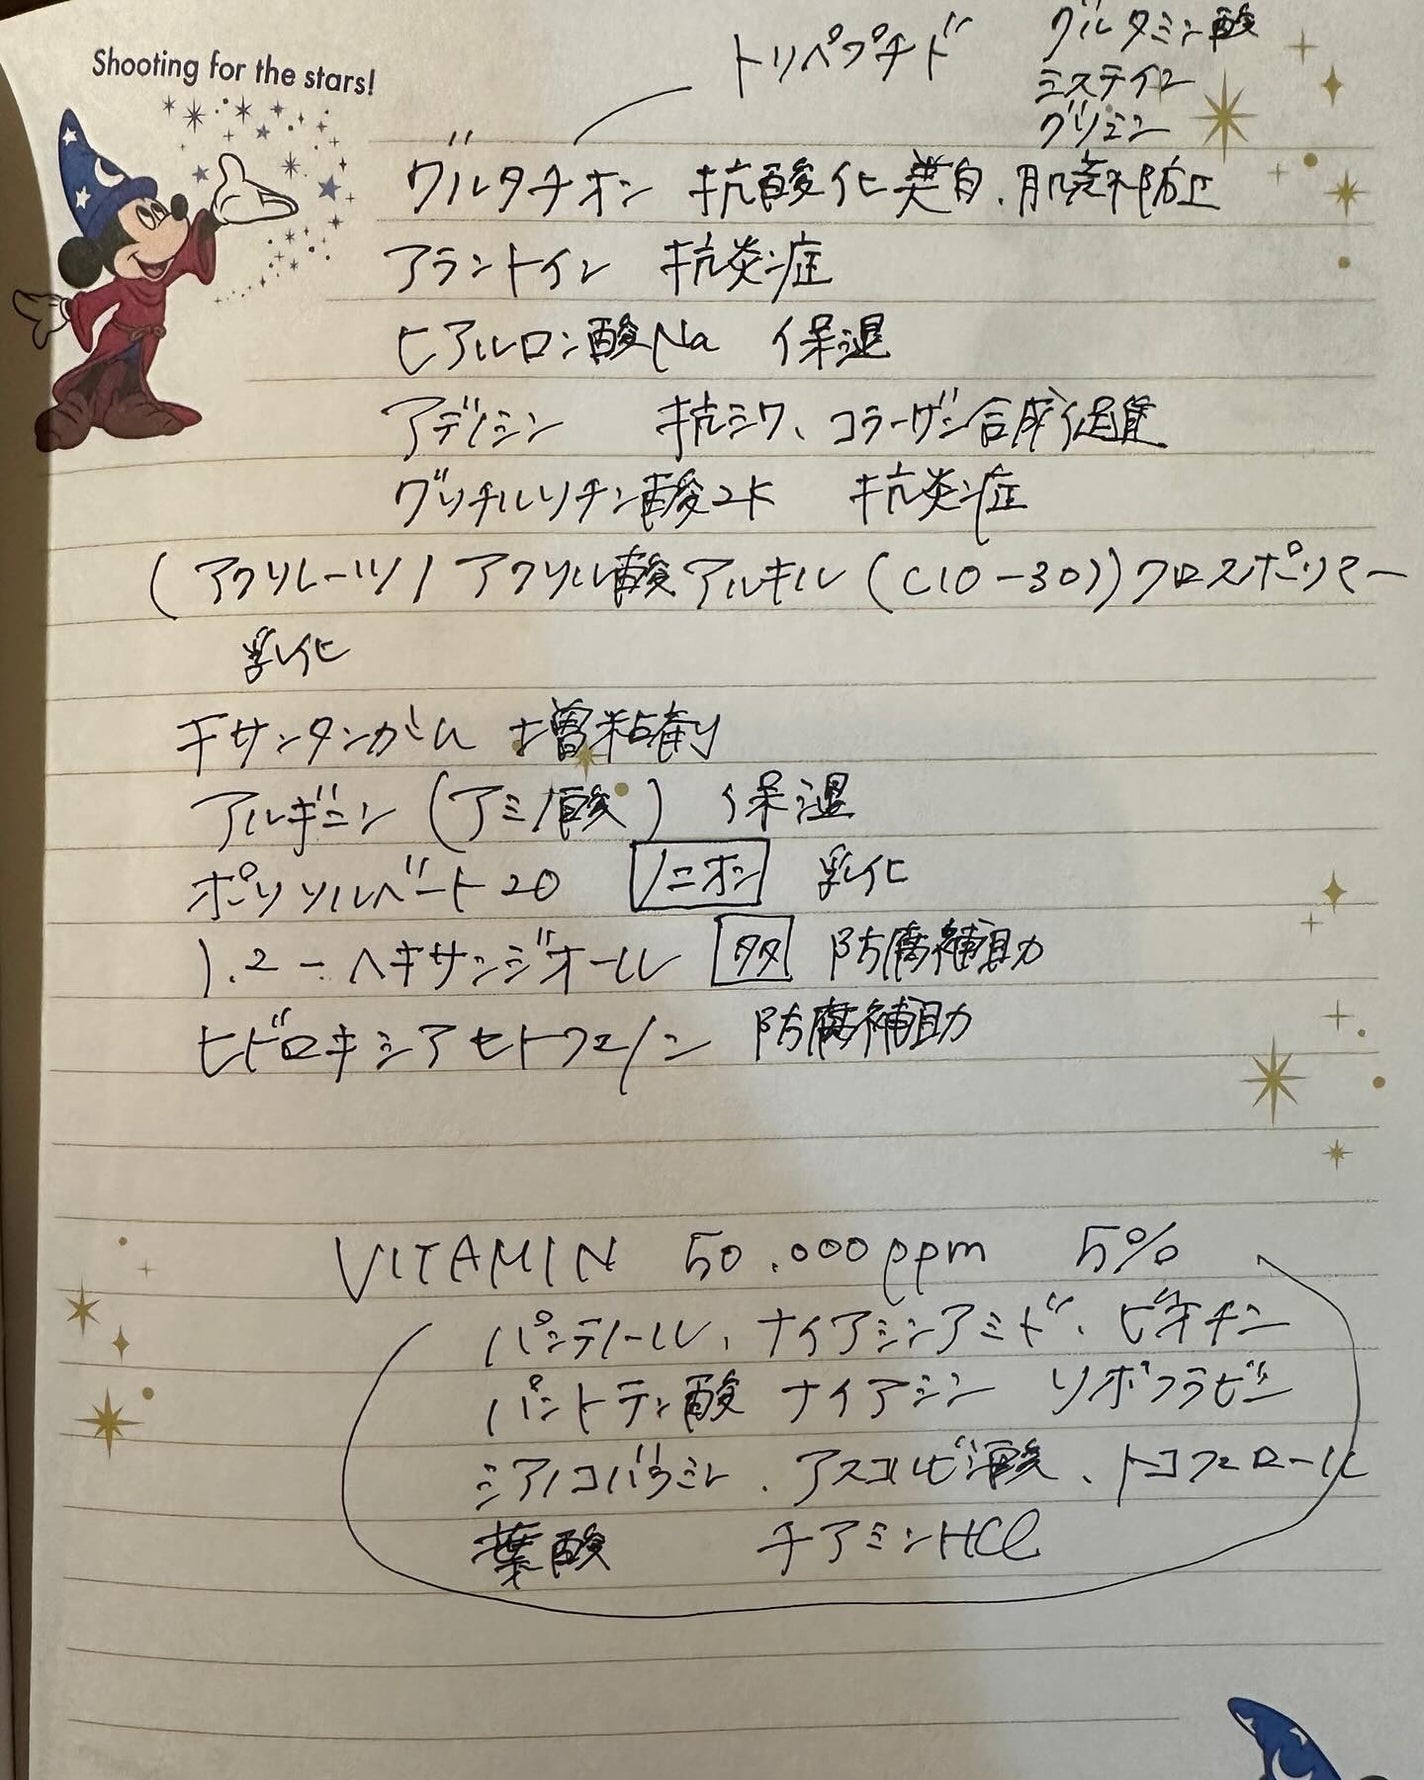 Shooting for the stars!
トリペプチド
グルタミン酸
システイン
グリシン
グルタチオン 抗酸化 美白、肌荒れ防止
アラントイン 抗炎症
ヒアルロン酸Na 保湿
アデノシン 抗シワ、コラーゲン合成促進
グリチルリチン酸2K 抗炎症
(アクリレーツ/アクリル酸アルキル(C10-30))クロスポリマー
乳化
キサンタンガム 増粘剤
アルギニン(アミノ酸) 保湿
ポリソルベート20 ノニオン 乳化
1.2-ヘキサンジオール 多 防腐補助
ヒドロキシアセトフェノン 防腐補助
VITAMIN 50.000ppm 5%
パンテノール、ナイアシンアミド、ビオチン
パントテン酸 ナイアシン リボフラビン
シアノコバラミン、アスコルビン酸、トコフェロール
葉酸 チアミンHCl